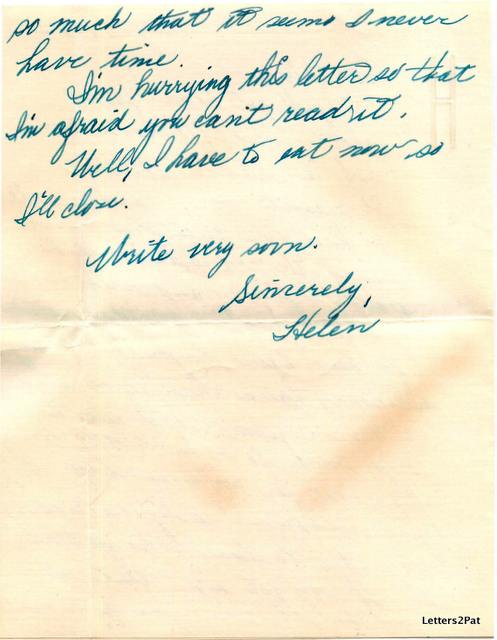 so much that it seems I never
have time.
I'm hurrying this letter so that
I'm afraid you can't read it.
Well, I have to eat now so
I'll close.
Write very soon.
Sincerely,
Helen
Letters2Pat